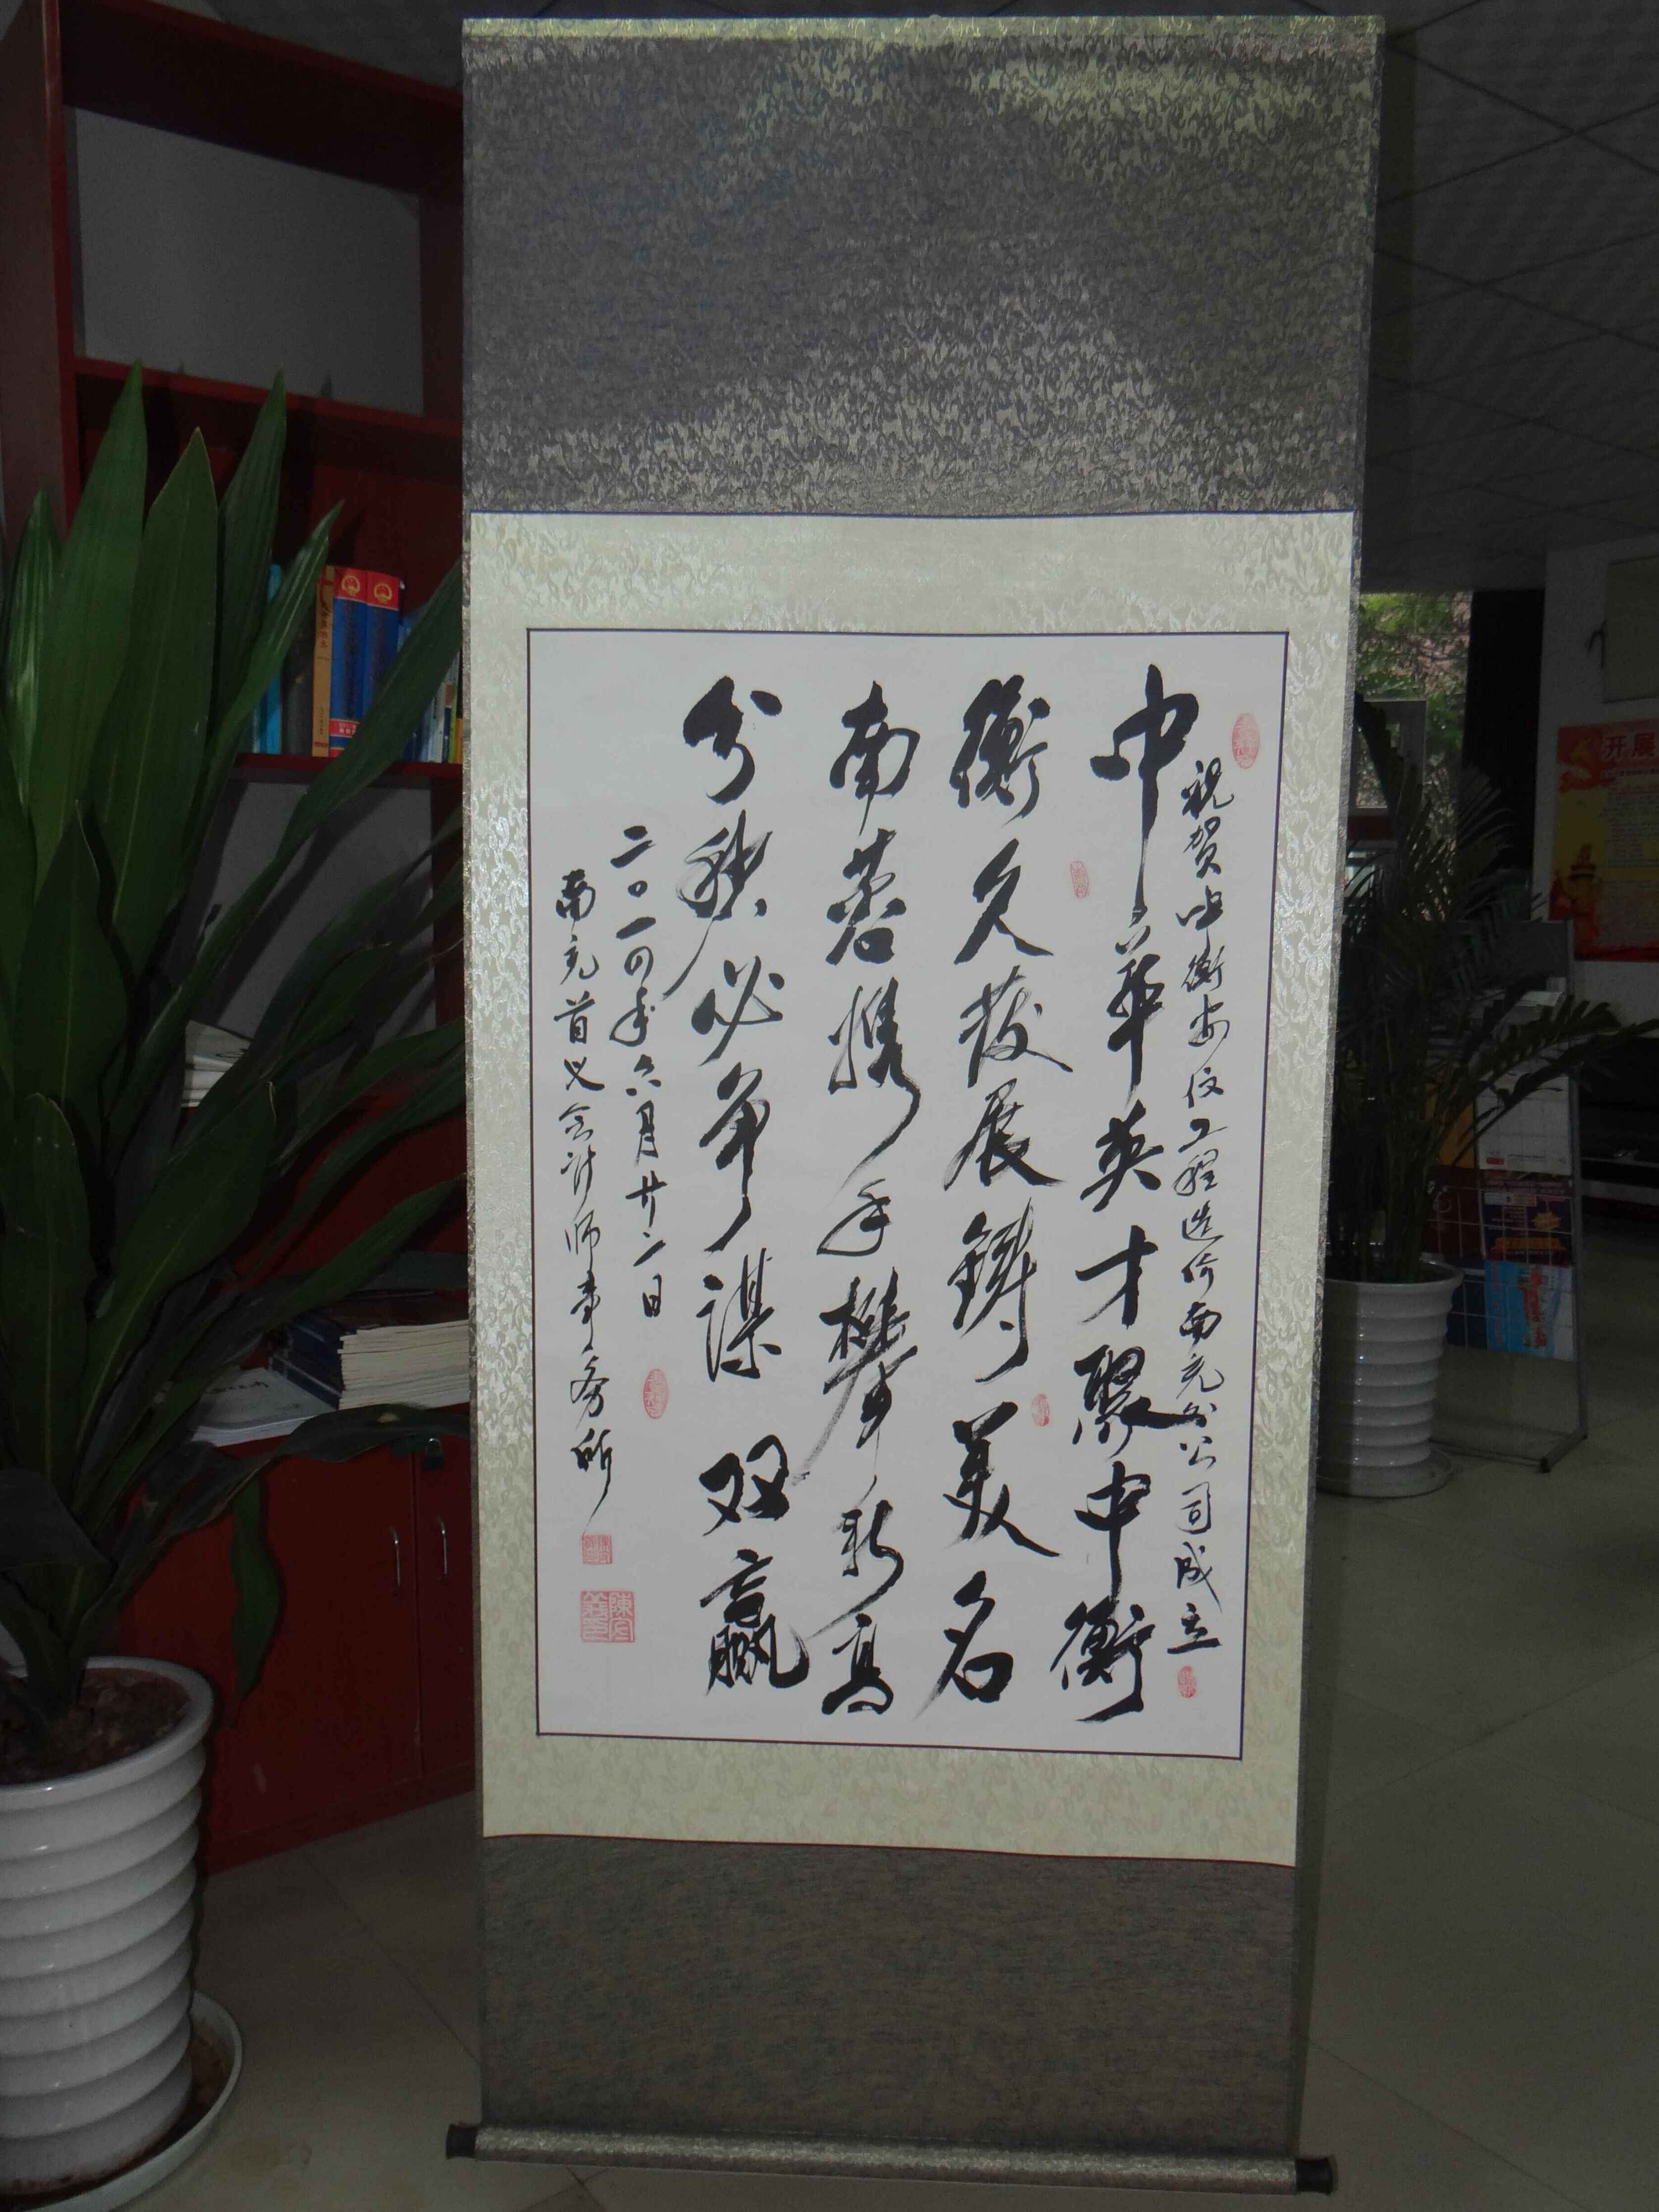 祝贺中衡安信工程造价南充分公司成立
中華英才聚中衡
衡久發展鑄美名
南蓉携手攀新高
分秒必争谋双赢
二〇一四年六月廿二日
南充首义会计师事务所
开展